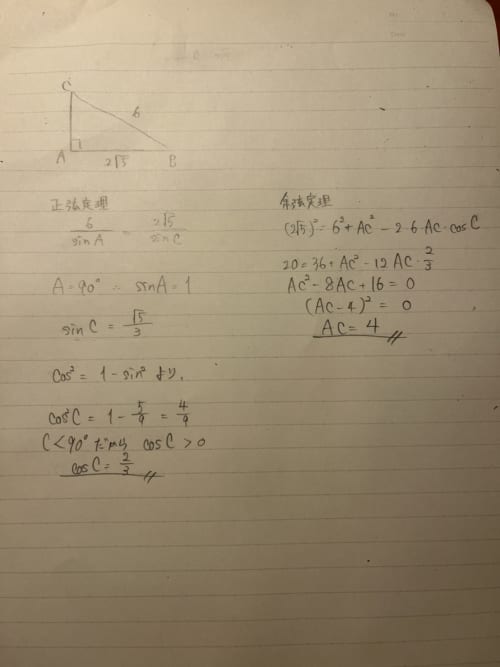 C
6
A
2√5
B
正弦定理
6/sinA = 2√5/sinC
A=90° ∴ sinA=1
sinC = √5/3
cos² = 1-sin² より、
cos²C = 1-5/9 = 4/9
C<90° だから cosC>0
cosC=2/3
余弦定理
(2√5)²=6²+AC²-2·6·AC·cosC
20=36+AC²-12AC·2/3
AC²-8AC+16=0
(AC-4)²=0
AC=4